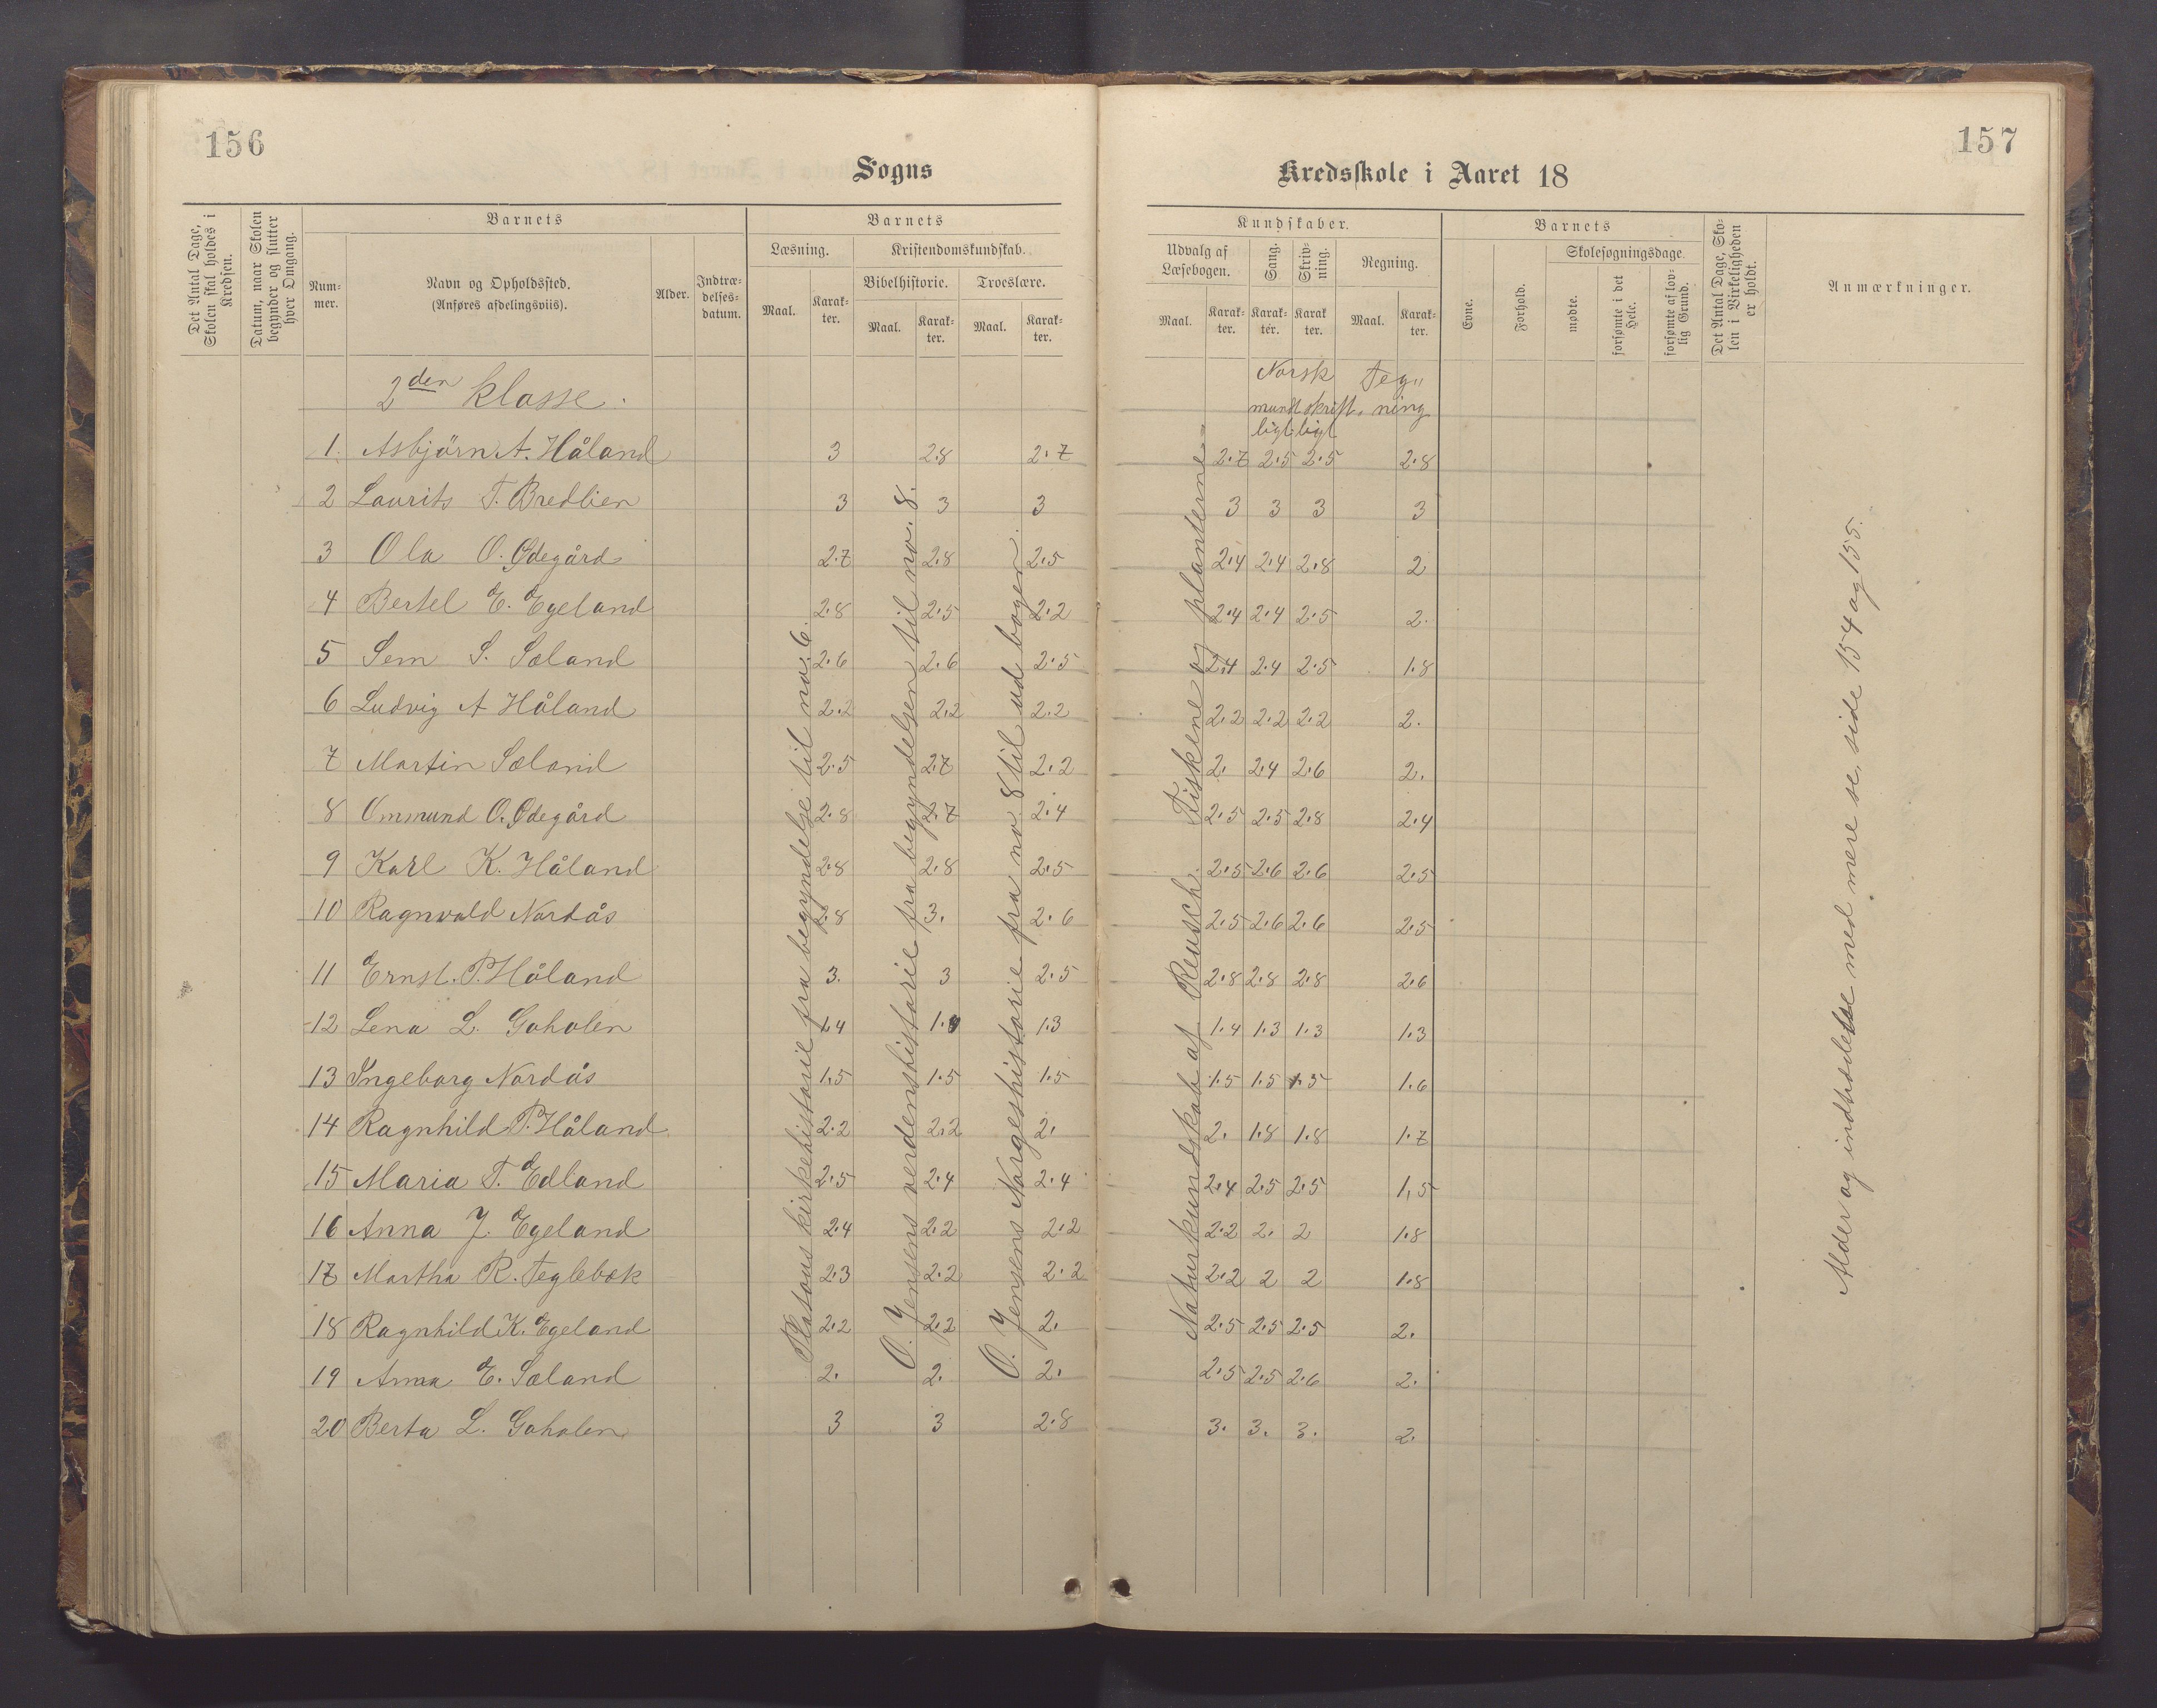 156
Sogns
Det Antal Dage, Skolen skal holdes i Kredsen.
Datum, naar Skolen begynder og slutter hver Omgang.
Barnets
Nummer.
Navn og Opholdssted.
(Anføres afdelingsviis).
Alder.
Indtrædelsesdatum.
Barnets
Læsning.
Kristendomskundskab.
Bibelhistorie. Troeslære.
Maal. Karakter. Maal. Karakter. Maal. Karakter.
157
Kredsskole i Aaret 18
Kundskaber.
Udvalg af Læsebogen. Sang. Skrivning. Regning.
Maal. Karakter. Karakter. Karakter. Maal. Karakter.
Barnets
Evne. Forhold.
Skolesøgningsdage
mødte. forsømte i det Hele. forsømte af lovlig Grund.
Det Antal Dage, Skolen i Virkeligheden er holdt.
Anmærkninger.
2den klasse.
Norsk Teg„
mundt skrift. ning
ligt ligt
1. Asbjörn A. Håland 3 2.8 2.7 2.7 2.5 2.5 2.8
2 Laurits T. Bredlien 3 3 3 3 3 3 3
3 Ola O. Ødegård 2.7 2.8 2.5 2.4 2.4 2.8 2
4 Bertel E. Egeland 2.8 2.5 2.2 2.4 2.4 2.5 2.
5 Sem S. Sæland 2.6 2.6 2.5 2.4 2.4 2.5 1.8
6 Ludvig A Håland 2.2 2.2 2.2 2.2 2.2 2.2 2.
7 Martin Sæland 2.5 2.7 2.2 2. 2.4 2.6 2.
8 Ommund O. Ødegård 2.8 2.7 2.4 2.5 2.5 2.8 2.4
9 Karl K. Håland 2.8 2.8 2.5 2.5 2.6 2.6 2.5
10 Ragnvald Nordås 2.8 3. 2.6 2.5 2.6 2.6 2.5
11 Ernst. P. Håland 3. 3 2.5 2.8 2.8 2.8 2.6
12 Lena L. Goholen 1.4 1.4 1.3 1.4 1.3 1.3 1.3
13 Ingeborg Nordås 1.5 1.5 1.5 1.5 1.5 1.5 1.6
14 Ragnhild P. Håland 2.2 2.2 2. 2. 1.8 1.8 1.7
15 Maria T. Edland 2.5 2.4 2.4 2.4 2.5 2.5 1,5
16 Anna J. Egeland 2.4 2.2 2.2 2.2 2. 2 1.8
17 Martha R. Teglebæk 2.3 2.2 2.2 2.2 2 2 1.8
18 Ragnhild K. Egeland 2.2 2.2 2. 2.5 2.5 2.5 2.
19 Anna E. Sæland 2. 2. 2. 2.5 2.5 2.6 2.
20 Berta L. Goholen 3 3 2.8 3. 3. 3. 2.
Platous kirkehistorie fra begyndelse til no. 6.
O. Jensens verdenshistorie fra begyndelsen til no. 8.
O. Jensens Norgeshistorie fra no 8 til ud bogen.
Naturkundskab af Reusch. Fiskene og planterne
Alder og indtrædelse med mere se, side 154 og 155.